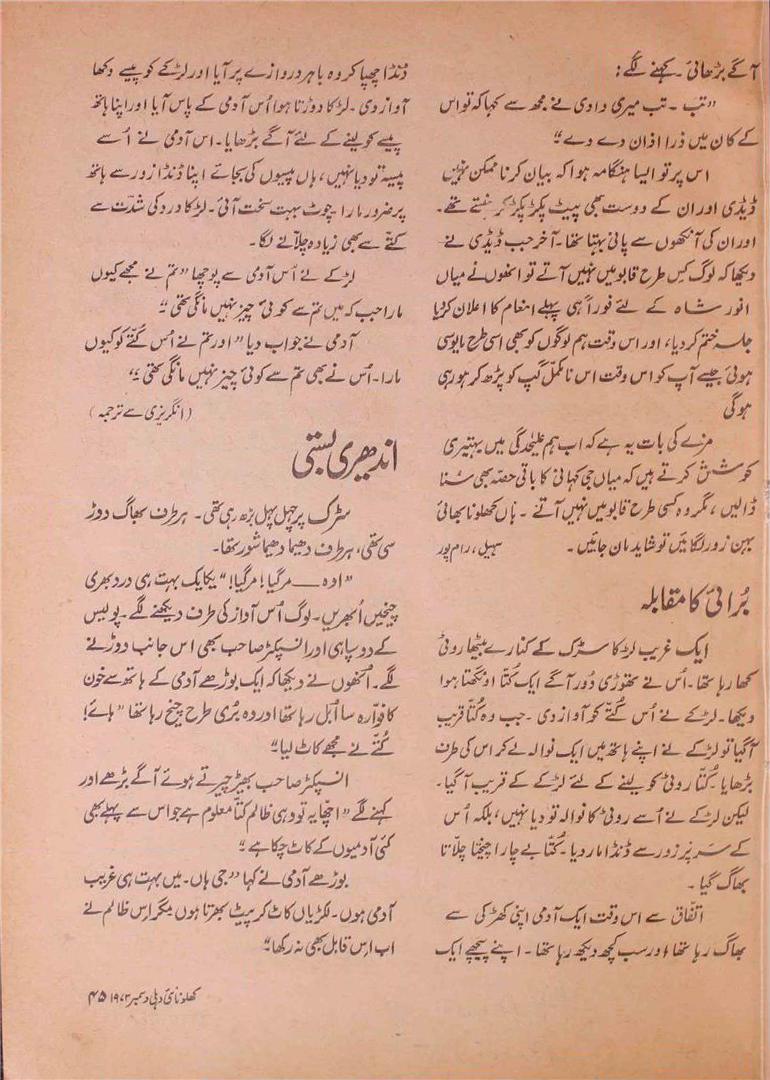 آگے بڑھائی ۔ کہنے لگے :
"تب ۔ تب میری دادی نے مجھ سے کہا کہ تو اس
کے کان میں ذرا اذان دے دے"
اس پر تو ایسا ہنگامہ ہوا کہ بیان کرنا ممکن نہیں
ڈیڈی اور ان کے دوست بھی پیٹ پکڑ پکڑ کر ہنستے تھے۔
اور ان کی آنکھوں سے پانی بہتا تھا۔ آخر جب ڈیڈی نے
دیکھا کہ لوگ کس طرح قابو میں نہیں آتے تو انھوں نے میاں
انور شاہ کے لئے فوراً ہی پہلے انعام کا اعلان کر دیا
جلسہ ختم کر دیا، اور اس وقت ہم لوگوں کو بھی اسی طرح مایوسی
ہوئی جیسے آپ کو اس وقت اس نامکمل گپ کو پڑھ کر ہو رہی
ہوگی
مزے کی بات یہ ہے کہ اب ہم علیحدگی میں بہتیری
کوشش کرتے ہیں کہ میاں جی کہانی کا باقی حصہ بھی سنا
ڈالیں، مگر وہ کسی طرح قابو میں نہیں آتے ۔ ہاں کھلونا بھائی
بہن زور لگائیں تو شاید مان جائیں ۔ سہیل، رام پور
بُرائی کا مقابلہ
ایک غریب لڑکا سڑک کے کنارے بیٹھا روٹی
کھا رہا تھا۔ اُس نے تھوڑی دُور آگے ایک کُتّا اونگھتا ہوا
دیکھا۔ لڑکے نے اُس کُتّے کو آواز دی ۔ جب وہ کُتّا قریب
آگیا تو لڑکے نے اپنے ہاتھ میں ایک نوالہ لے کر اس کی طرف
بڑھایا۔ کُتّا روٹی کو لینے کے لئے لڑکے کے قریب آگیا۔
لیکن لڑکے نے اُسے روٹی کا نوالہ تو دیا نہیں، بلکہ اُس
کے سر پر زور سے ڈنڈا مار دیا ۔ کُتّا بے چارا چیختا چلّاتا
بھاگ گیا ۔
اتّفاق سے اس وقت ایک آدمی اپنی کھڑکی سے
بھاگ رہا تھا اور سب کچھ دیکھ رہا تھا ۔ اپنے پیچھے ایک
ڈنڈا چھپا کر وہ باہر دروازے پر آیا اور لڑکے کو پیسے دکھا
آواز دی ۔ لڑکا دوڑتا ہوا اُس آدمی کے پاس آیا اور اپنا ہاتھ
پیسے کو لینے کے لئے آگے بڑھایا۔ اس آدمی نے اُسے
پیسہ تو دیا نہیں، ہاں پیسوں کی بجائے اپنا ڈنڈا زور سے ہاتھ
پر ضرور مارا ۔ چوٹ بہت سخت آئی۔ لڑکا درد کی شدّت سے
کُتّے سے بھی زیادہ چلّانے لگا ۔
لڑکے نے اُس آدمی سے پوچھا "تم نے مجھے کیوں
مارا جب کہ میں تم سے کوئی چیز نہیں مانگی تھی"
آدمی نے جواب دیا "اور تم نے اُس کُتّے کو کیوں
مارا۔ اُس نے بھی تم سے کوئی چیز نہیں مانگی تھی"
(انگریزی سے ترجمہ)
اندھیری بستی
سڑک پر چہل پہل بڑھ رہی تھی ۔ ہر طرف بھاگ دوڑ
سی تھی، ہر طرف دھیما دھیما شور تھا۔
"اوہ — مر گیا! مر گیا!" یکایک بہت ہی درد بھری
چیخیں اُبھریں۔ لوگ اُس آواز کی طرف دیکھنے لگے۔ پولیس
کے دو سپاہی اور انسپکٹر صاحب بھی اس جانب دوڑنے
لگے۔ اُنھوں نے دیکھا کہ ایک بوڑھے آدمی کے ہاتھ سے خون
کا فوّارہ سا اُبل رہا تھا اور وہ بُری طرح چیخ رہا تھا "ہائے!
کُتّے نے مجھے کاٹ لیا"
انسپکٹر صاحب بھیڑ چیرتے ہوئے آگے بڑھے اور
کہنے لگے "اچھا یہ تو وہی ظالم کتا معلوم ہے جو اس سے پہلے بھی
کئی آدمیوں کے کاٹ چکا ہے"
بوڑھے آدمی نے کہا "جی ہاں۔ میں بہت ہی غریب
آدمی ہوں۔ لکڑیاں کاٹ کر پیٹ بھرتا ہوں مگر اس ظالم نے
اب اس قابل بھی نہ رکھا"
کھلونا نئی دہلی دسمبر ۱۹۷۳ ۴۵